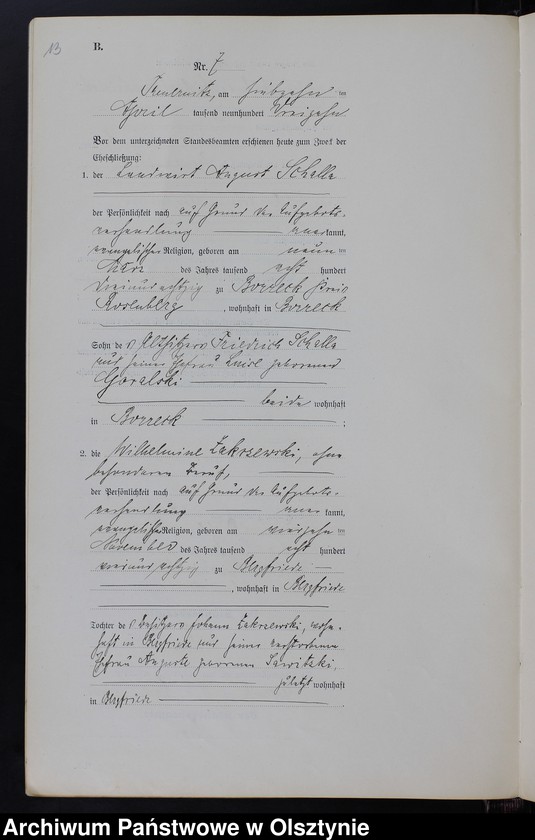 13
B.
Nr. 7
am siebzehn ten
April tausend neunhundert dreizehn
Vor dem unterzeichneten Standesbeamten erschienen heute zum Zweck der
Eheschließung:
1. der Landwirt August Schella
der Persönlichkeit nach auf Grund der Aufgebots-
verhandlung anerkannt,
evangelischer Religion, geboren am neun ten
März des Jahres tausend acht hundert
dreiundachtzig zu Borreck Kreis
Rosenberg, wohnhaft in Borreck
Sohn des Altsitzers Friedrich Schella
und seiner Ehefrau Luise geborenen
Goralski
beide wohnhaft
in Borreck ;
2. die Wilhelmine Zakrzewski, ohne
besonderen Beruf,
der Persönlichkeit nach auf Grund der Aufgebots-
verhandlung aner kannt,
evangelischer Religion, geboren am vierzehn ten
November des Jahres tausend acht hundert
achtzig zu
, wohnhaft in
Tochter des Besitzers Johann Zakrzewski, wohn-
haft in und seiner verstorbenen
Ehefrau Auguste geborenen Sawitzki,
zuletzt wohnhaft
in
Archiwum Państwowe w Olsztynie